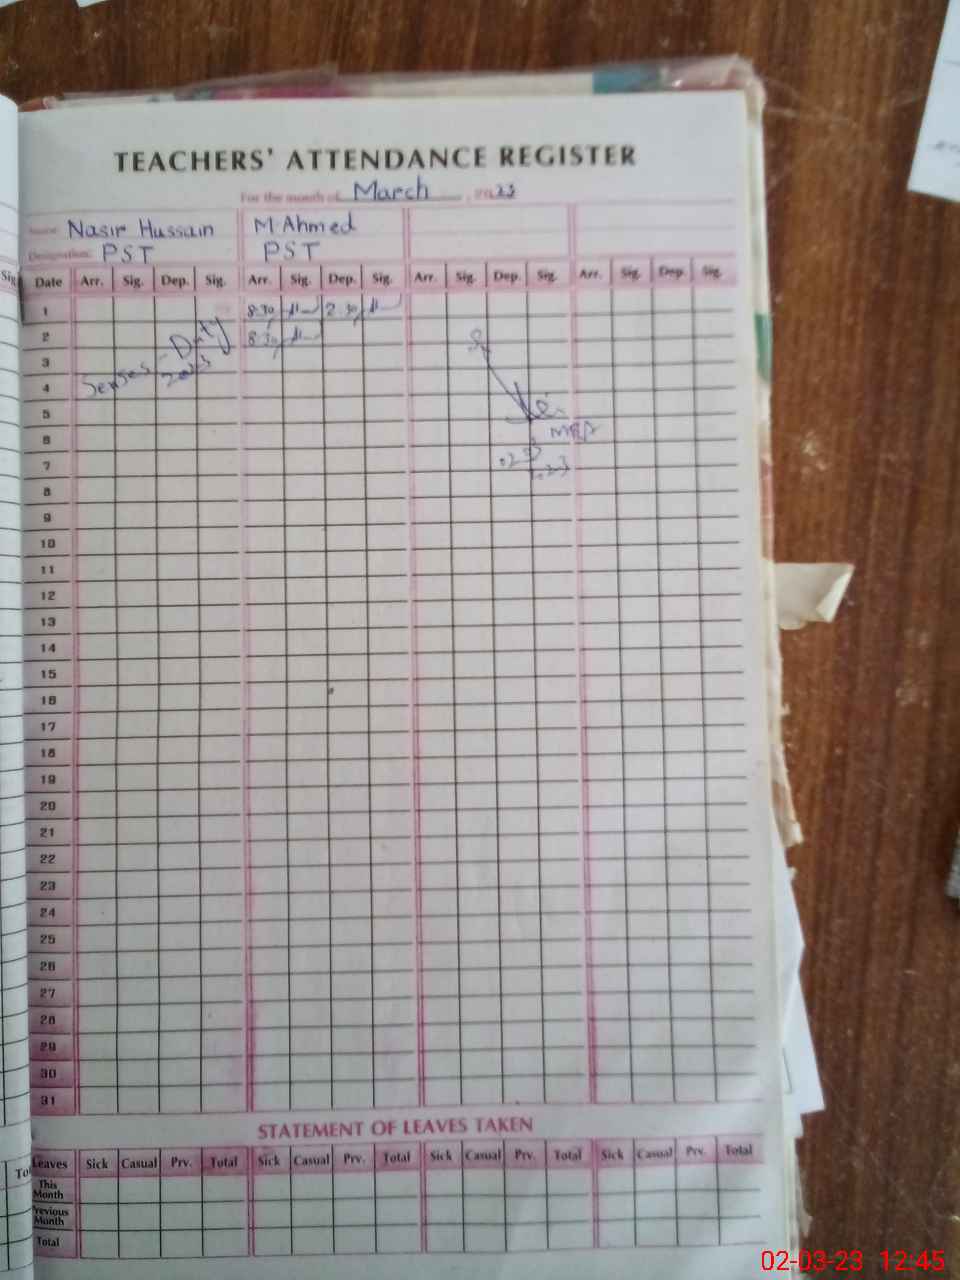 TEACHERS' ATTENDANCE REGISTER
For the month of March, 2023
Name: Nasir Hussain M. Ahmed
Designation: PST PST
Date Arr. Sig. Dep. Sig. Arr. Sig. Dep. Sig. Arr. Sig. Dep. Sig. Arr. Sig. Dep. Sig.
1 8:30 2:30
2 8:30
Senses - Duty
2023
3
4
5
6
7
8
9
10
11
12
13
14
15
16
17
18
19
20
21
22
23
24
25
26
27
28
29
30
31
STATEMENT OF LEAVES TAKEN
Leaves Sick Casual Prv. Total Sick Casual Prv. Total Sick Casual Prv. Total Sick Casual Prv. Total
This Month
Previous Month
Total
02-03-23 12:45